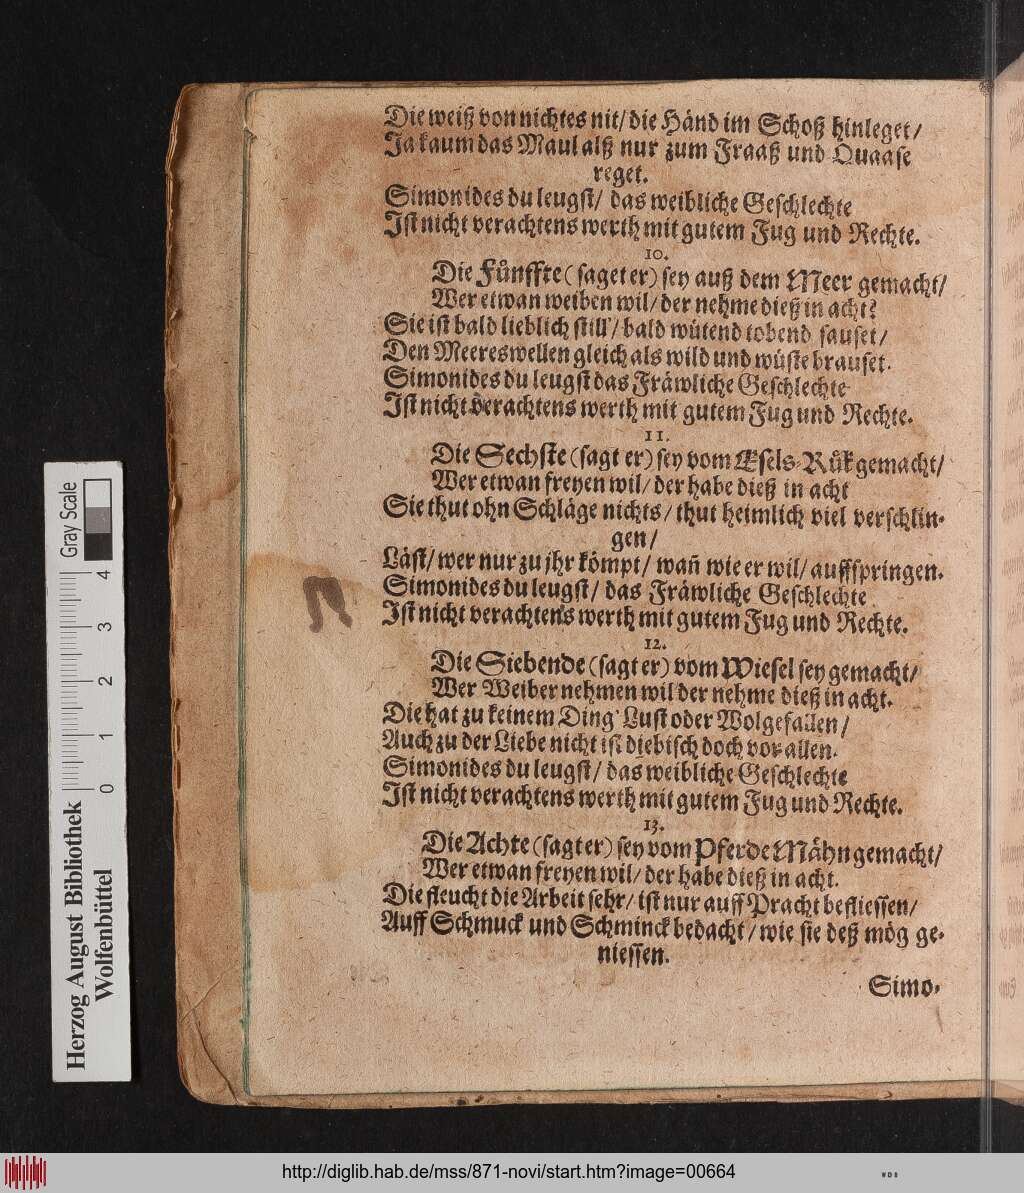 Die weiß von nichtes nit/ die Händ im Schoß hinleget/
Ja kaum das Maul alß nur zum Fraaß und Quaase
reget.
Simonides du leugst/ das weibliche Geschlechte
Ist nicht verachtens werth mit gutem Fug und Rechte.
10.
Die Fünffte (saget er) sey auß dem Meer gemacht/
Wer etwan weiben wil/ der nehme dieß in acht?
Sie ist bald lieblich still/ bald wütend tobend sauset/
Den Meereswellen gleich als wild und wüste brauset.
Simonides du leugst das Fräwliche Geschlechte
Ist nicht verachtens werth mit gutem Fug und Rechte.
11.
Die Sechste (sagt er) sey vom Esels-Rük gemacht/
Wer etwan freyen wil/ der habe dieß in acht
Sie thut ohn Schläge nichts/ thut heimlich viel verschlin-
gen/
Läst/ wer nur zu jhr kömpt/ wañ wie er wil/ auffspringen.
Simonides du leugst/ das Fräwliche Geschlechte
Ist nicht verachtens werth mit gutem Fug und Rechte.
12.
Die Siebende (sagt er) vom Wiesel sey gemacht/
Wer Weiber nehmen wil der nehme dieß in acht.
Die hat zu keinem Ding Lust oder Wolgefallen/
Auch zu der Liebe nicht ist diebisch doch vor allen.
Simonides du leugst/ das weibliche Geschlechte
Ist nicht verachtens werth mit gutem Fug und Rechte.
13.
Die Achte (sagt er) sey vom Pferde Mähn gemacht/
Wer etwan freyen wil/ der habe dieß in acht.
Die fleucht die Arbeit sehr/ ist nur auff Pracht befliessen/
Auff Schmuck und Schminck bedacht/ wie sie deß mög ge-
niessen.
Simo-
Gray Scale
4
3
2
1
0
Herzog August Bibliothek
Wolfenbüttel
http://diglib.hab.de/mss/871-novi/start.htm?image=00664